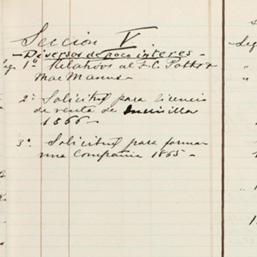 Seccion V
Diversos de poco interes
1º Relativos al F. C. Potk y
Mac Manus
2º Solicitud para licencia
de venta de
1866
3º Solicitud para formar
una Compañia 1865